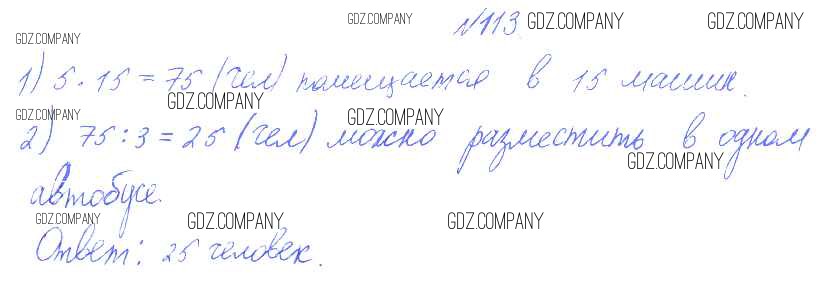 GDZ.COMPANY №113 GDZ.COMPANY GDZ.COMPANY
GDZ.COMPANY
1) 5 · 15 = 75 (чел) помещается в 15 машин.
GDZ.COMPANY
GDZ.COMPANY GDZ.COMPANY
2) 75 : 3 = 25 (чел) можно разместить в одном
GDZ.COMPANY
автобусе.
GDZ.COMPANY GDZ.COMPANY GDZ.COMPANY
Ответ: 25 человек.